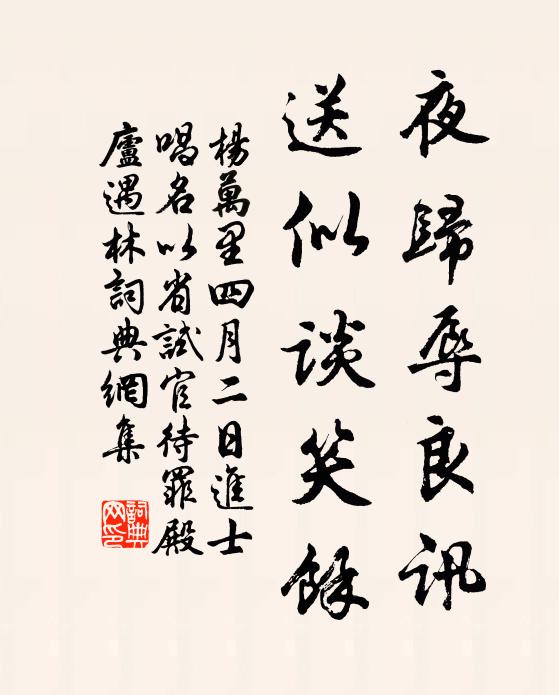 夜歸辱良訊
送似談笑餘
楊萬里四月二日進士
唱名以省試官待罪殿
廬遇林詞典網集
詞典
网印